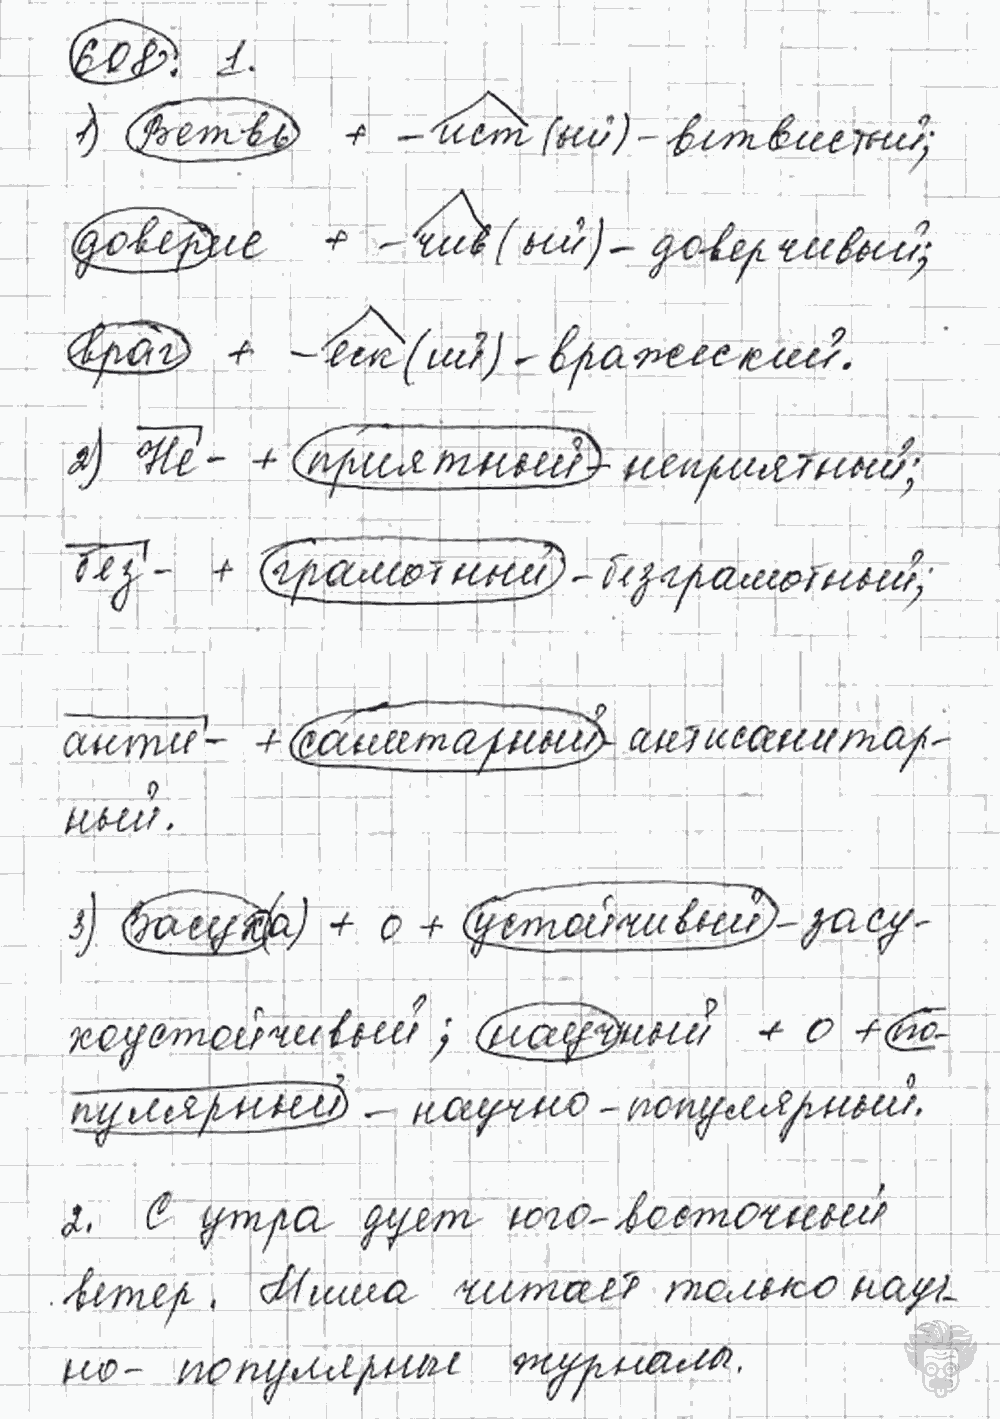 608. 1.
1) Ветвь + -ист(ый) - ветвистый;
доверие + -чив(ый) - доверчивый;
враг + -еск(ий) - вражеский.
2) Не- + приятный - неприятный;
без- + грамотный - безграмотный;
анти- + санитарный - антисанитар-
ный.
3) Засух(а) + о + устойчивый - засу-
хоустойчивый; научный + о + по-
пулярный - научно-популярный.
2. С утра дует юго-восточный
ветер. Миша читает только науч-
но-популярные журналы.